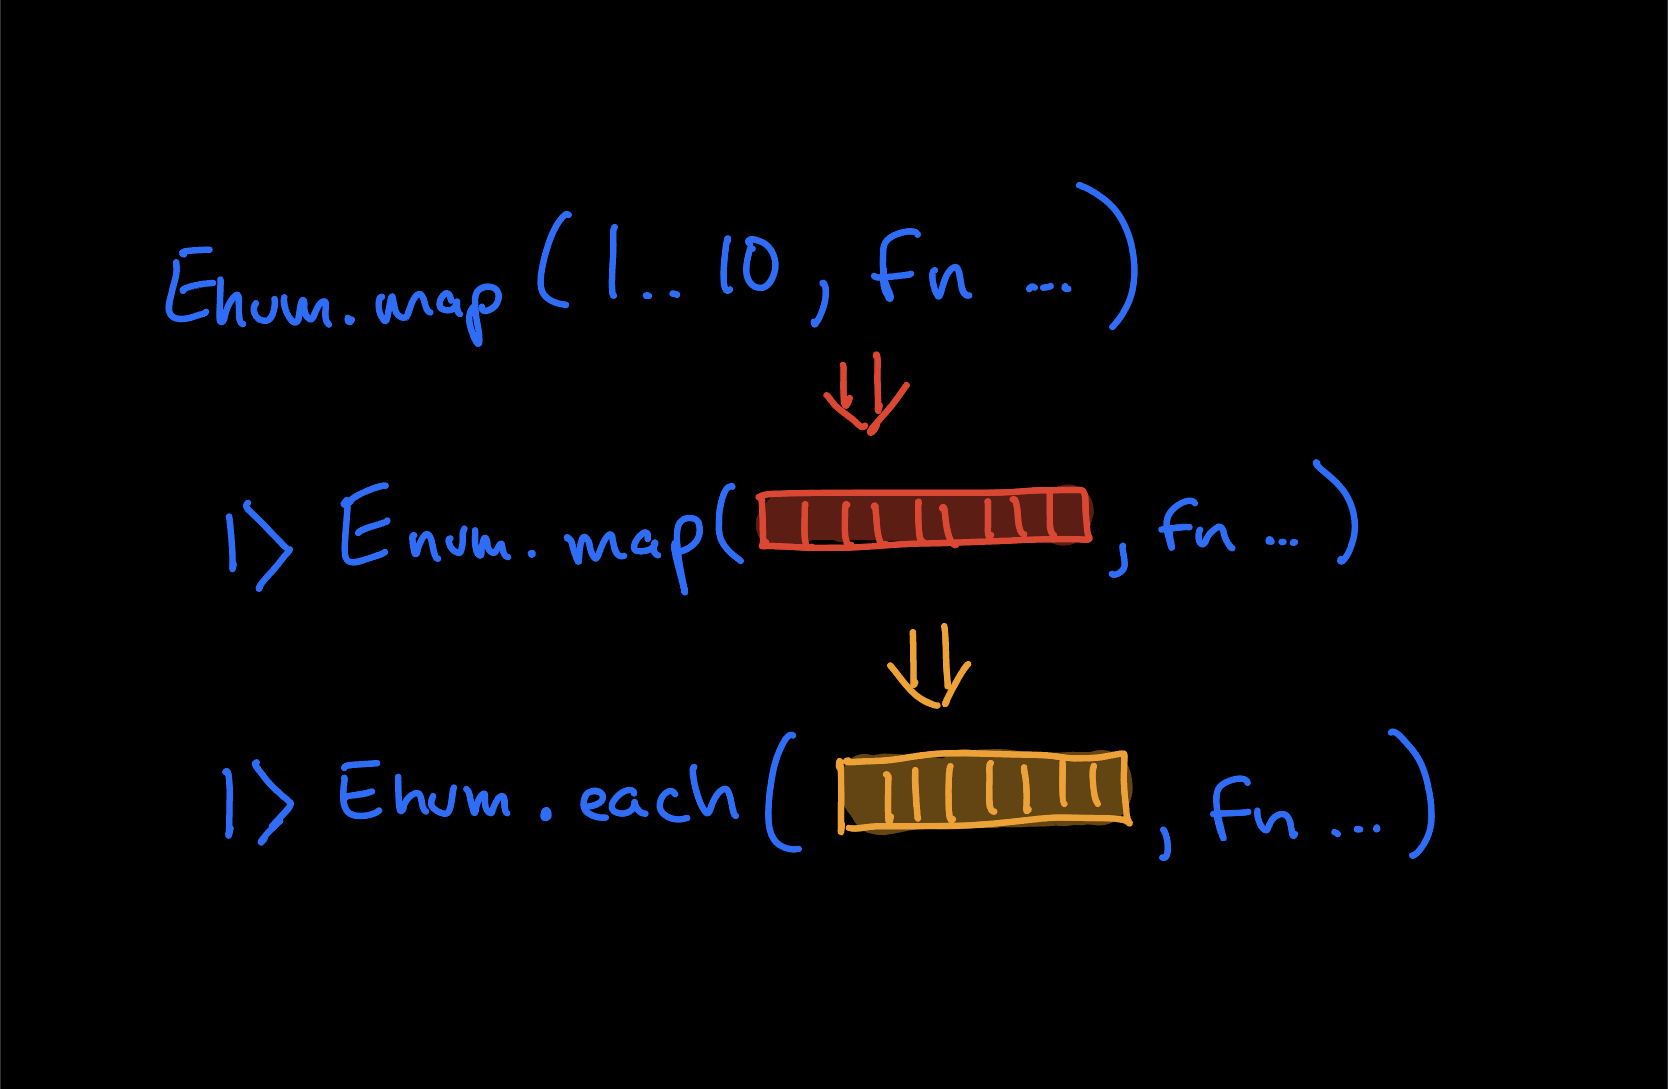 Enum.map(1..10, fn ...)
|> Enum.map( , fn ...)
|> Enum.each( , fn ...)